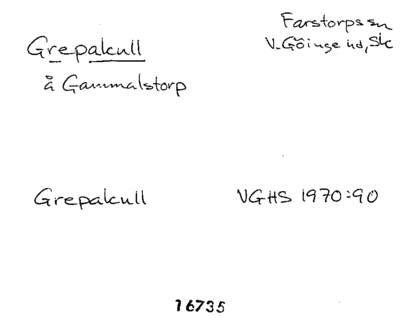 Grepakull
Farstorps sn
V. Göinge hd, Sk
å Gammalstorp
Grepakull
VGHS 1970:90
16735